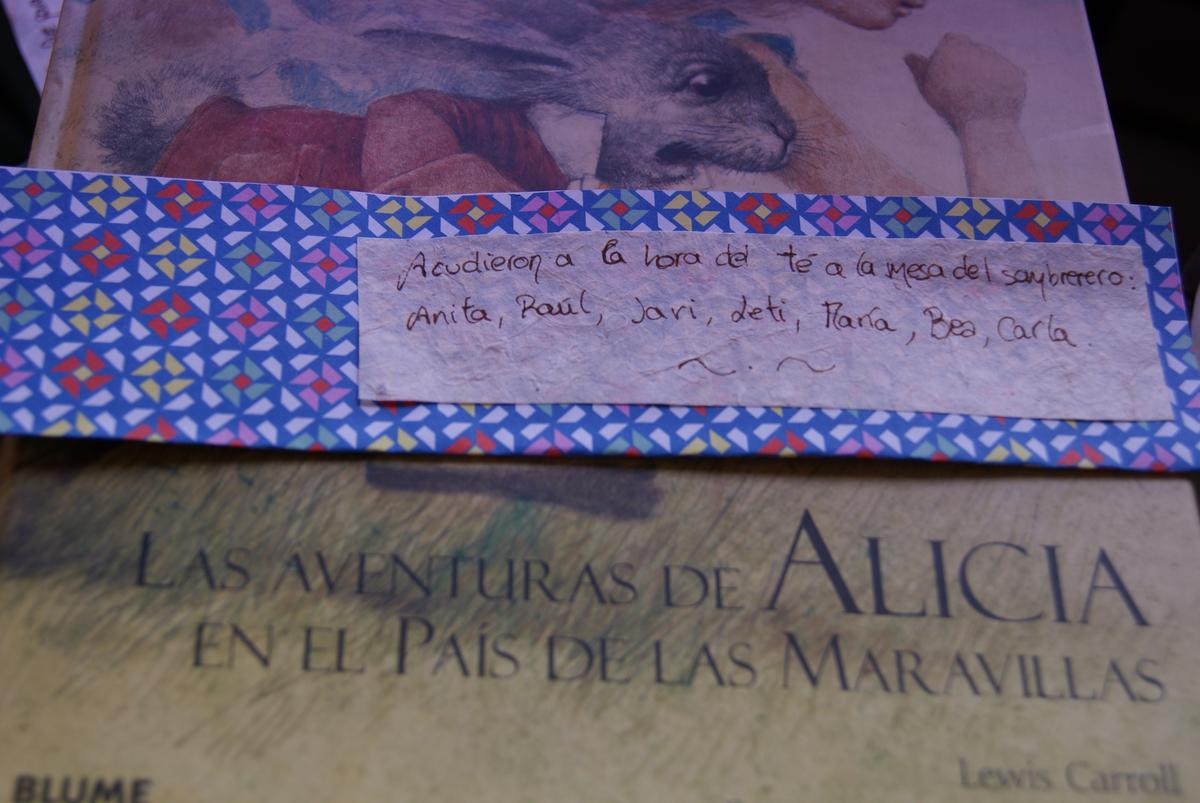 Acudieron a la hora del té a la mesa del sombrerero:
Anita, Raúl, Javi, Leti, María, Bea, Carla.
LAS AVENTURAS DE ALICIA
EN EL PAÍS DE LAS MARAVILLAS
Lewis Carroll
BLUME